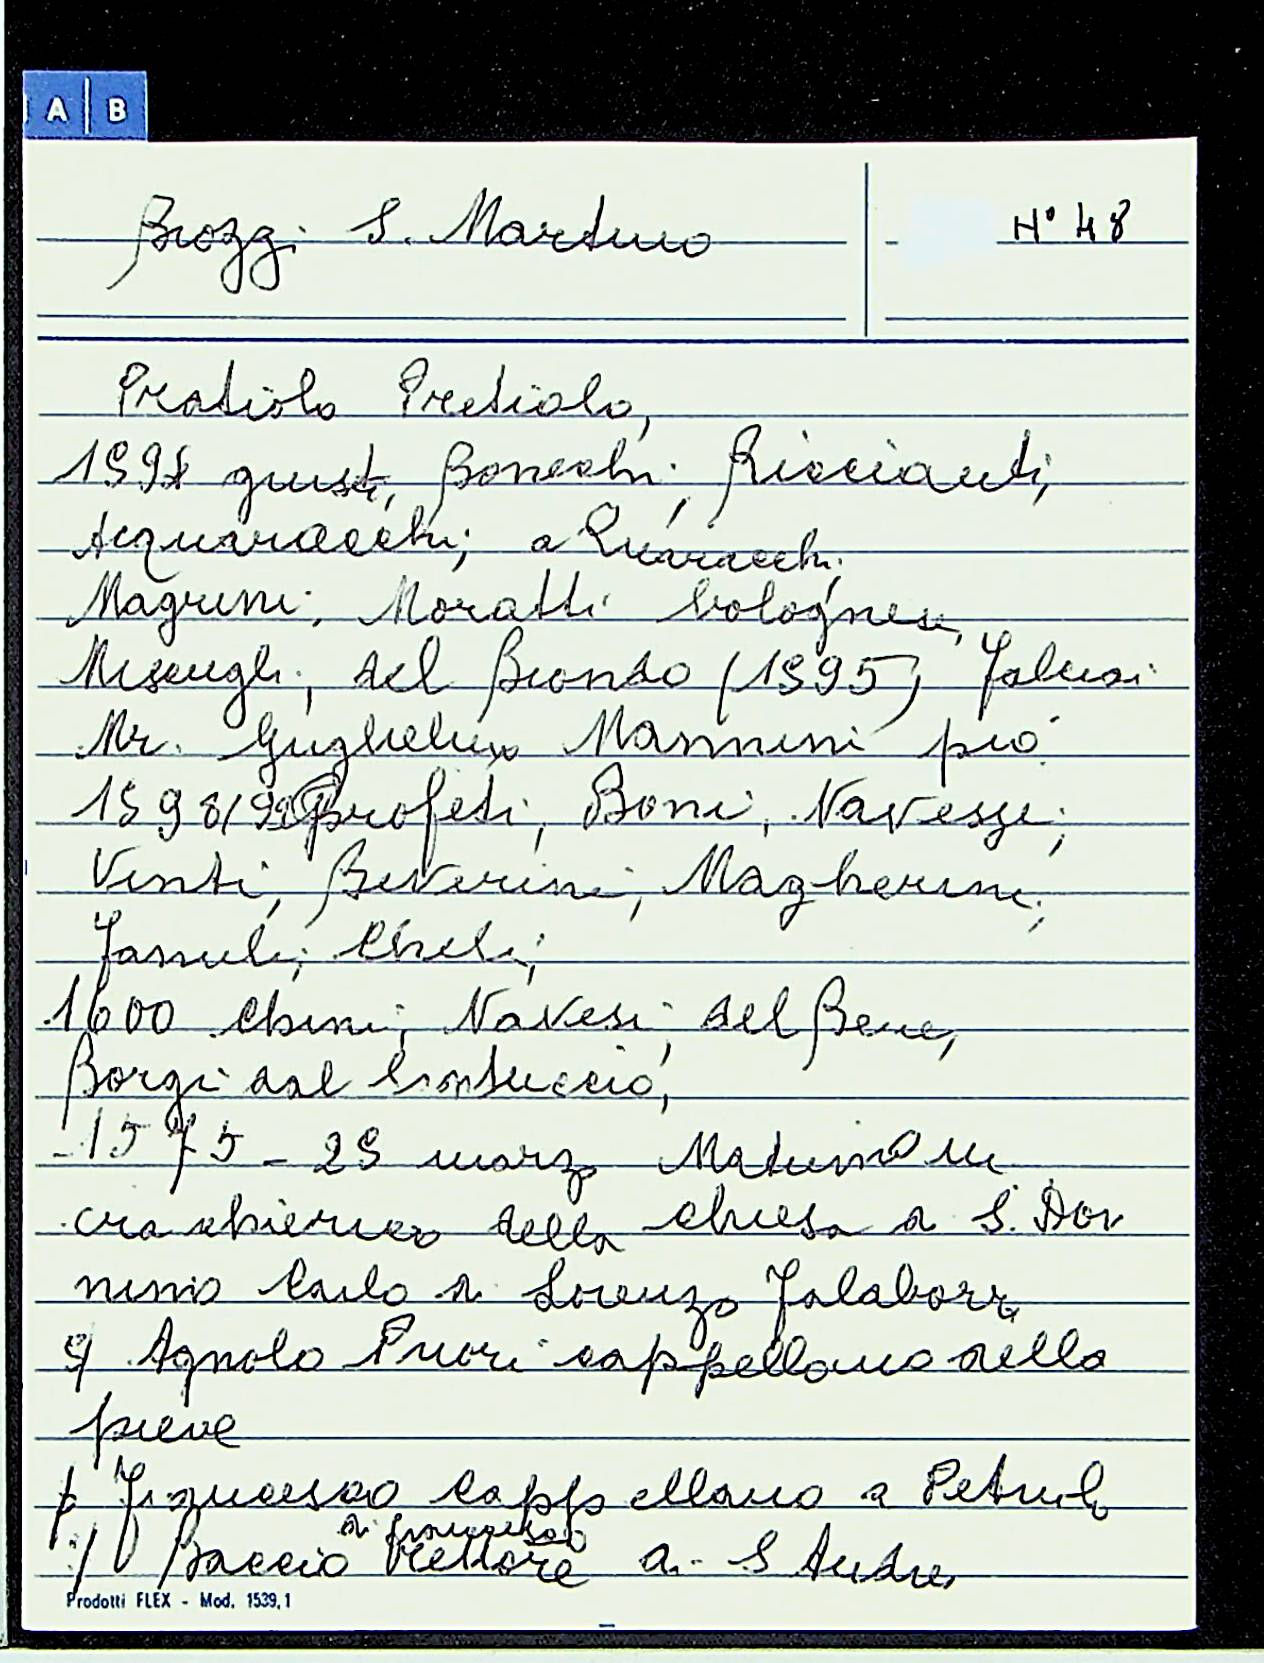 A B
Brozzi S. Martino
N° 48
Pratiolo Pretiolo,
1598 giusti, Bonechi; Riccianti,
Acquaracchi; a Quaracchi
Magrini; Moratti bolognese,
del Biondo (1595)
Mr. Guglielmo Mannini più
1598/99 Profeti, Boni, Navesse;
Venti, Beverini, Magherini;
Cheli;
1600 Chini; Navesi; del Bene,
Borgi dal Cantuccio,
-1575 - 25 marzo
era chierico della chiesa di S. Don
nino Carlo di Lorenzo
Agnolo Puori cappellano della
pieve
Francesco Cappellano a Petriolo
di francesco
Baccio Rettore a S Andre
Prodotti FLEX - Mod. 1539,1